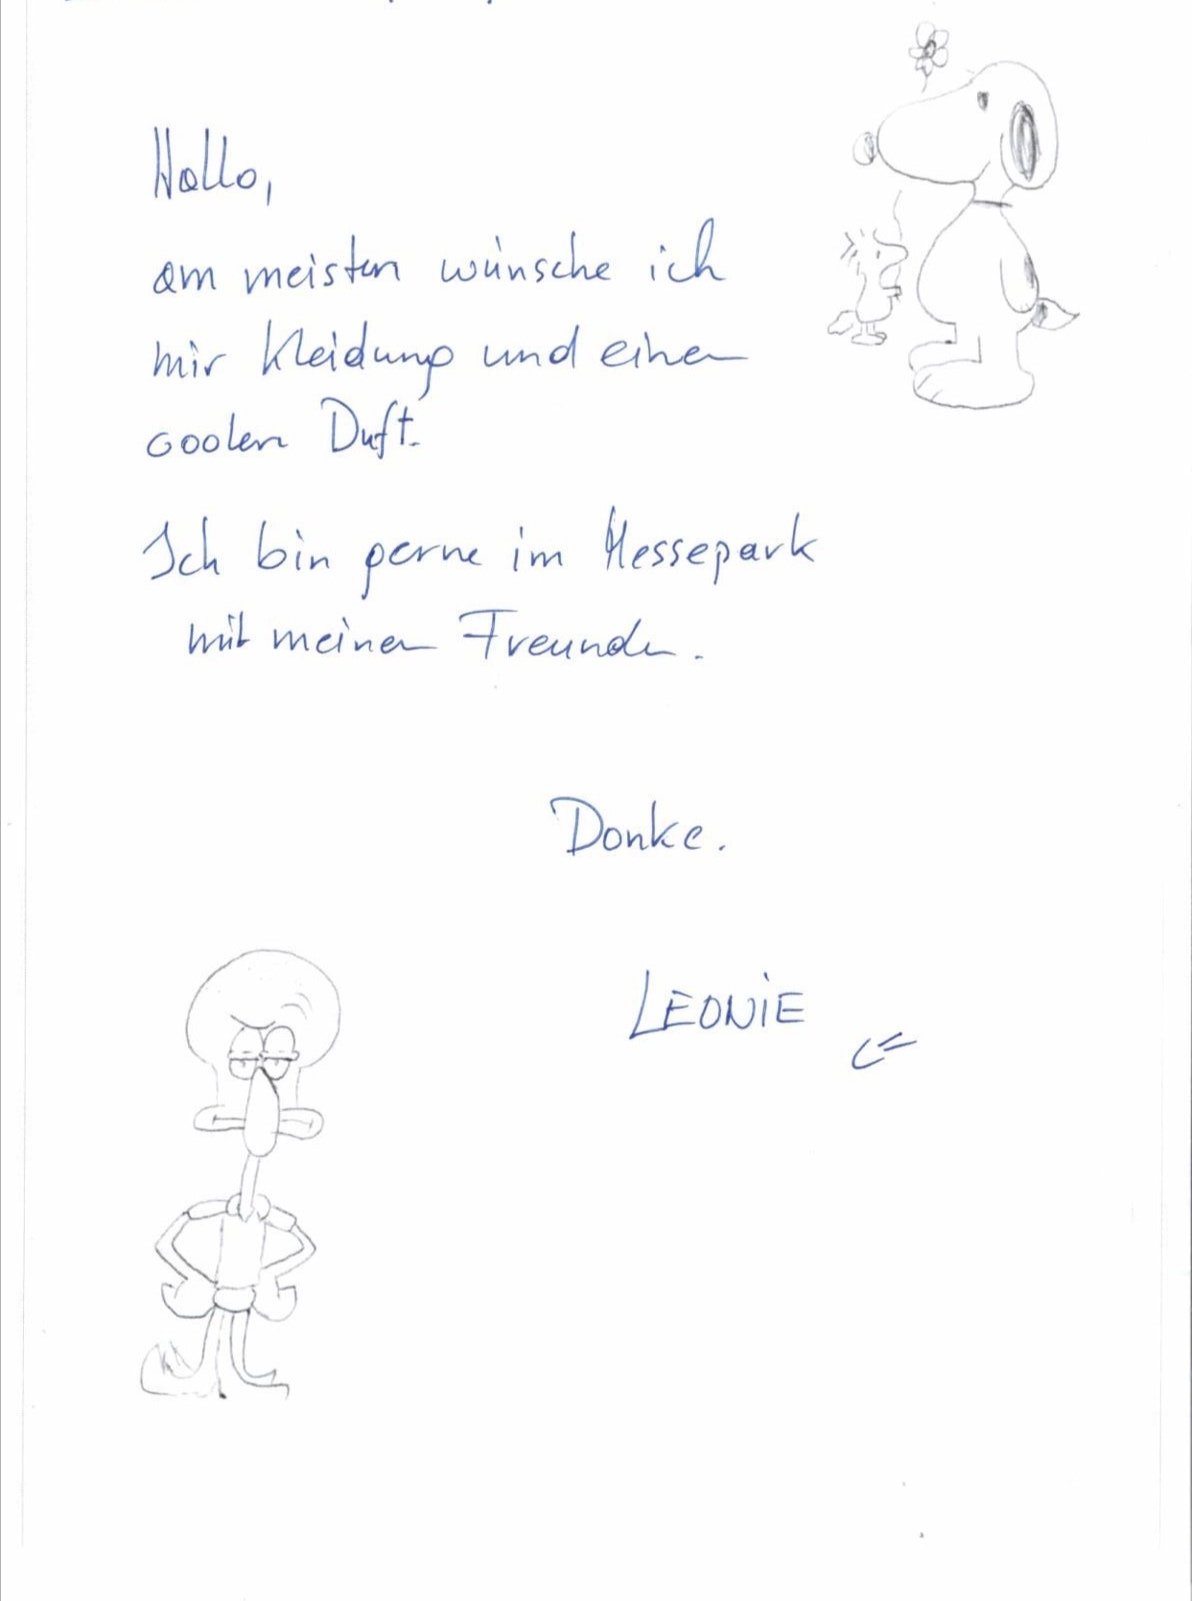 Hallo,
am meisten wünsche ich
mir Kleidung und einen
coolen Duft.
Ich bin gerne im Messepark
mit meinen Freunden.
Danke.
LEONIE